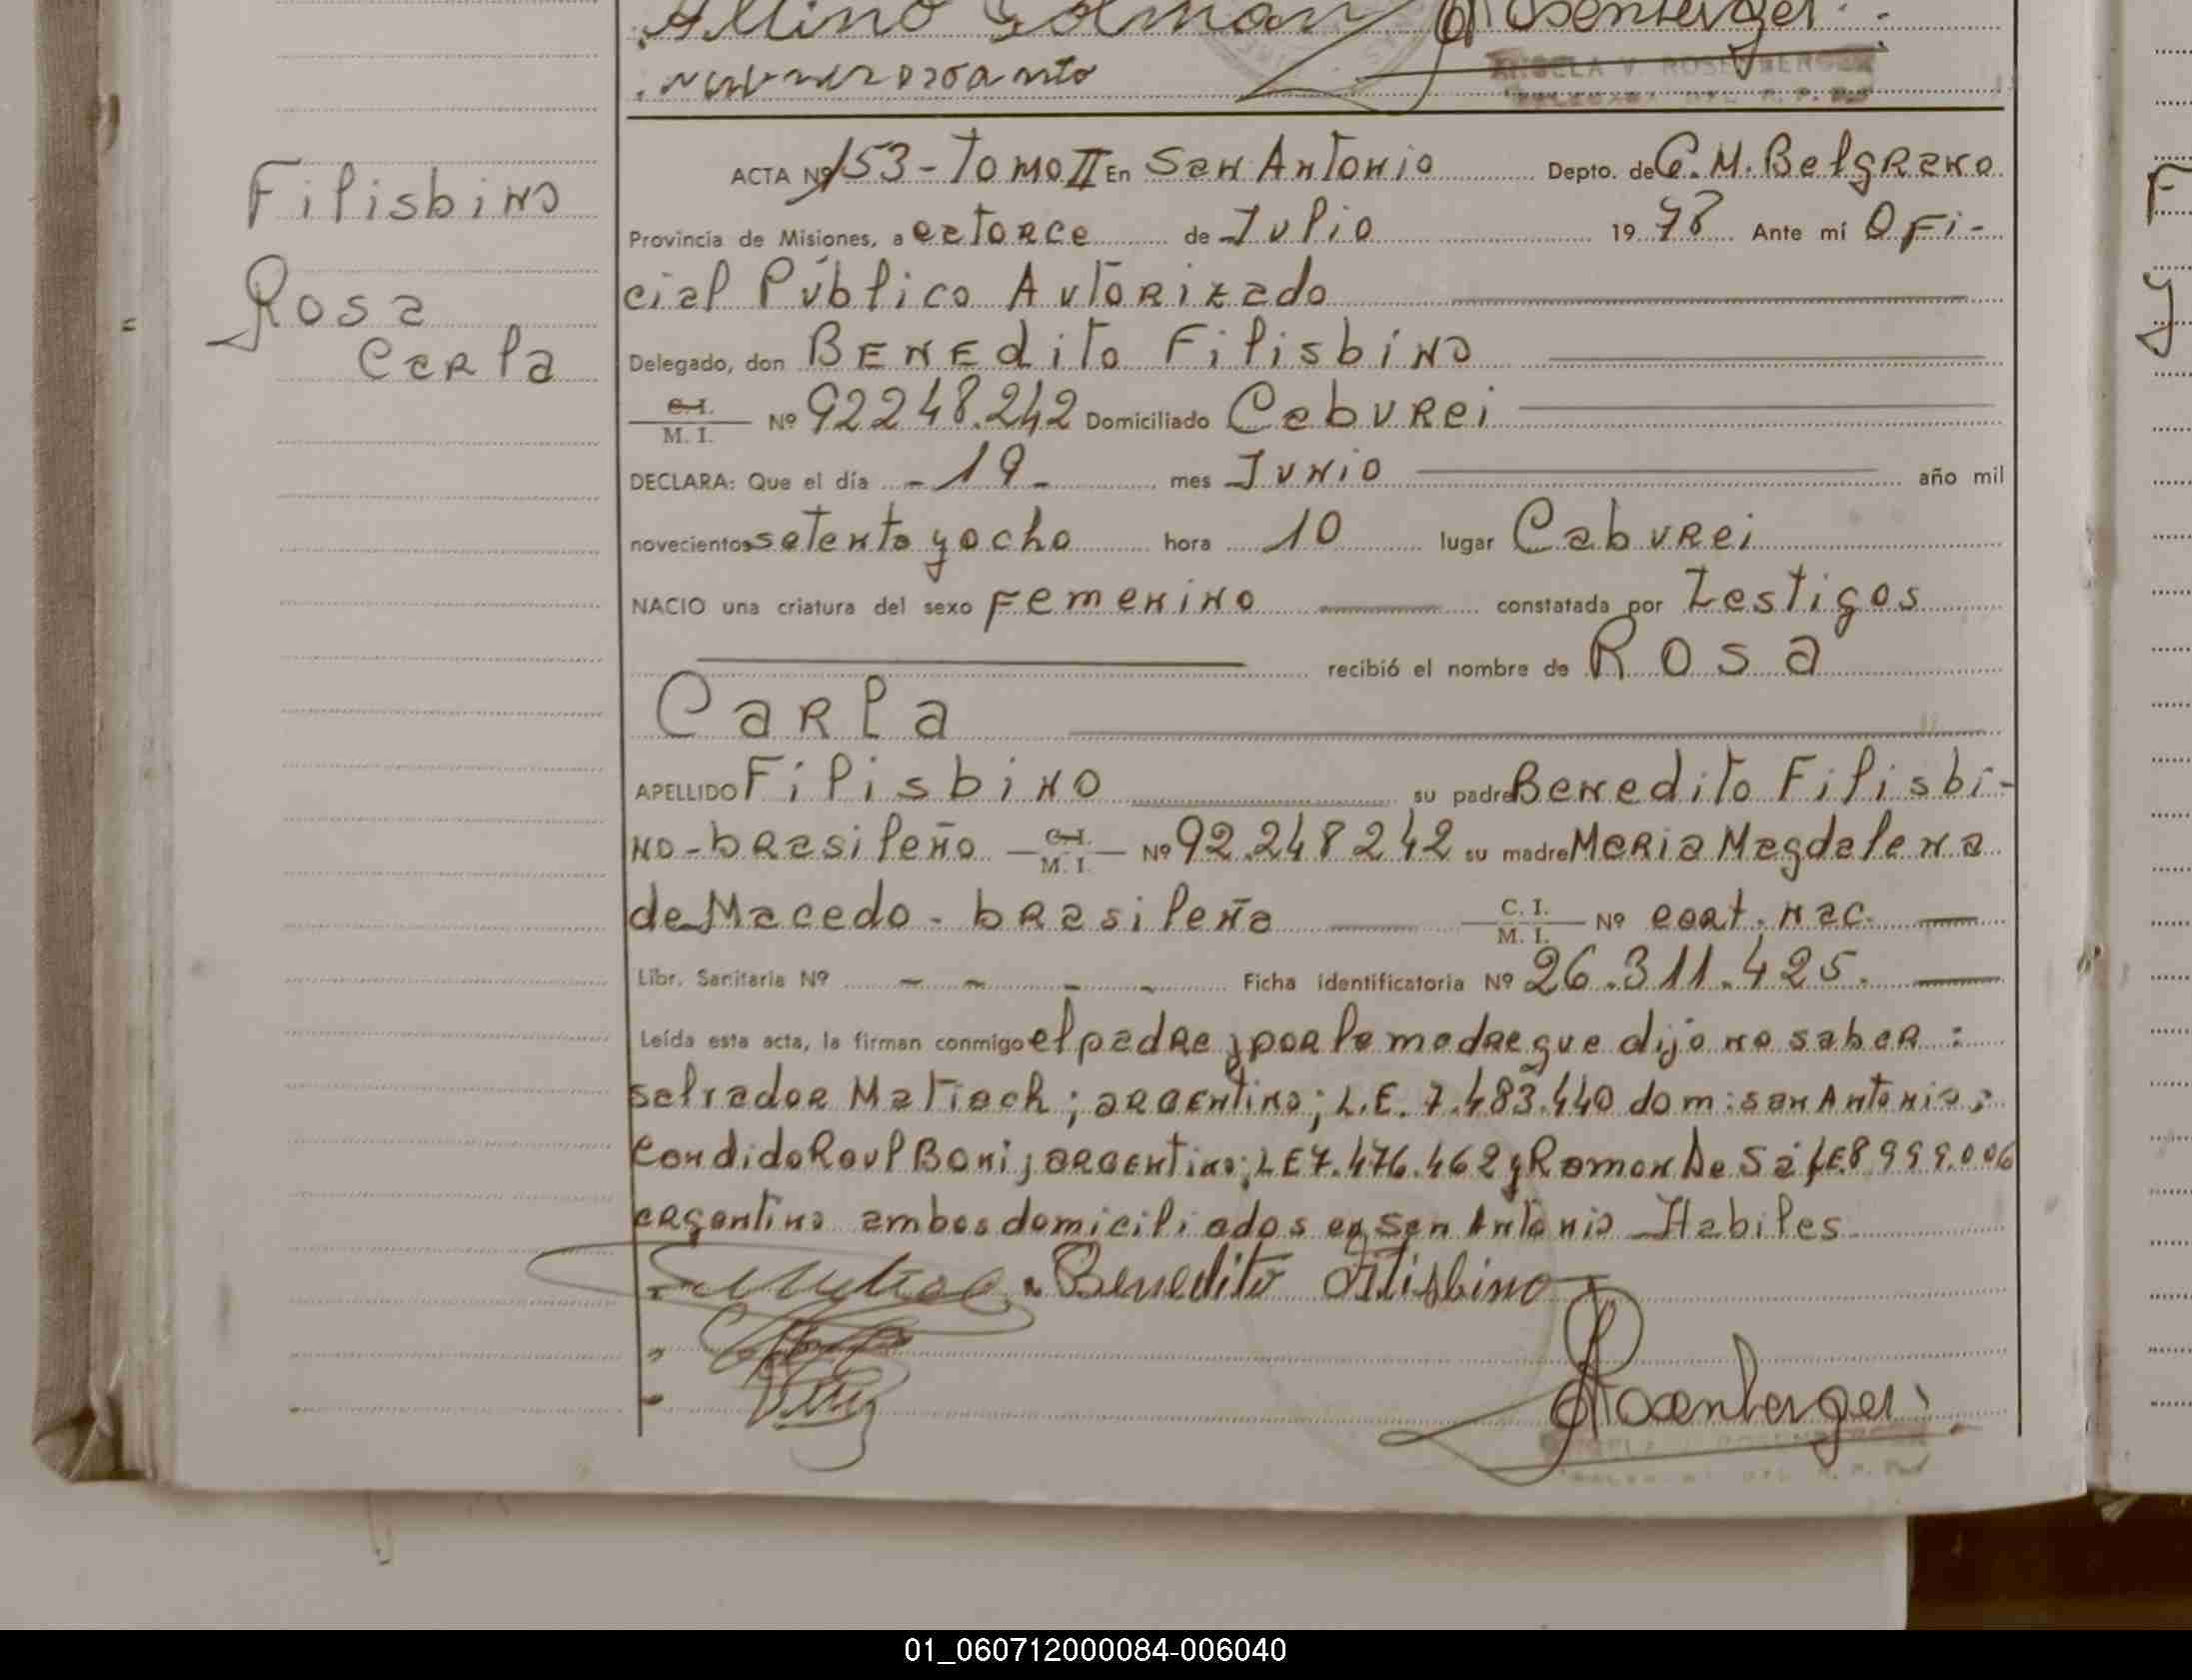 Altino Golman Rosenberger
ANGELA V. ROSENBERGER
Filisbino
Rosa
Carla
ACTA Nº 153 - Tomo II En San Antonio Depto. de G. M. Belgrano
Provincia de Misiones, a catorce de Julio 1978 Ante mí Ofi-
cial Público Autorizado
Delegado, don Benedito Filisbino
C.I. M. I. Nº 92248.242 Domiciliado Caburei
DECLARA: Que el día - 19 - mes Junio año mil
novecientos setenta y ocho hora 10 lugar Caburei
NACIO una criatura del sexo Femenino constatada por Testigos
recibió el nombre de Rosa
Carla
APELLIDO Filisbino su padre Benedito Filisbi-
no - brasileño C.I. M. I. Nº 92.248242 su madre Maria Magdalena
de Macedo - brasileña C. I. M. I. Nº cert. nac.
Libr. Sanitaria Nº - - - - Ficha identificatoria Nº 26.311.425.
Leída esta acta, la firman conmigo el padre y por la madre que dijo no saber :
Salvador Matioch ; argentino ; L.E. 7.483.440 dom : San Antonio ;
Candido Raul Boni ; argentino ; L E 7.476.462 y Ramon De Sá L E 8999.006
argentino ambos domiciliados en San Antonio Habiles
Benedito Filisbino
Rosenberger
01_060712000084-006040